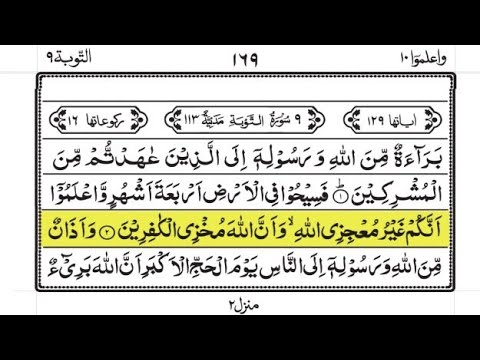 واعلموا ١٠ ١٦٩ التوبة ٩
اٰیاتها ١٢٩ ٩ سُوْرَةُ التَّوْبَةِ مَدَنِیَّةٌ ١١٣ رکوعاتها ١٦
بَرَآءَةٌ مِّنَ اللّٰهِ وَرَسُوْلِهٖۤ اِلَی الَّذِیْنَ عٰهَدْتُّمْ مِّنَ
الْمُشْرِكِیْنَ ۝١ فَسِیْحُوْا فِی الْاَرْضِ اَرْبَعَةَ اَشْهُرٍ وَّاعْلَمُوْۤا
اَنَّكُمْ غَیْرُ مُعْجِزِی اللّٰهِ ۙ وَاَنَّ اللّٰهَ مُخْزِی الْكٰفِرِیْنَ ۝٢ وَاَذَانٌ
مِّنَ اللّٰهِ وَرَسُوْلِهٖۤ اِلَی النَّاسِ یَوْمَ الْحَجِّ الْاَكْبَرِ اَنَّ اللّٰهَ بَرِیْٓءٌ
منزل ٢